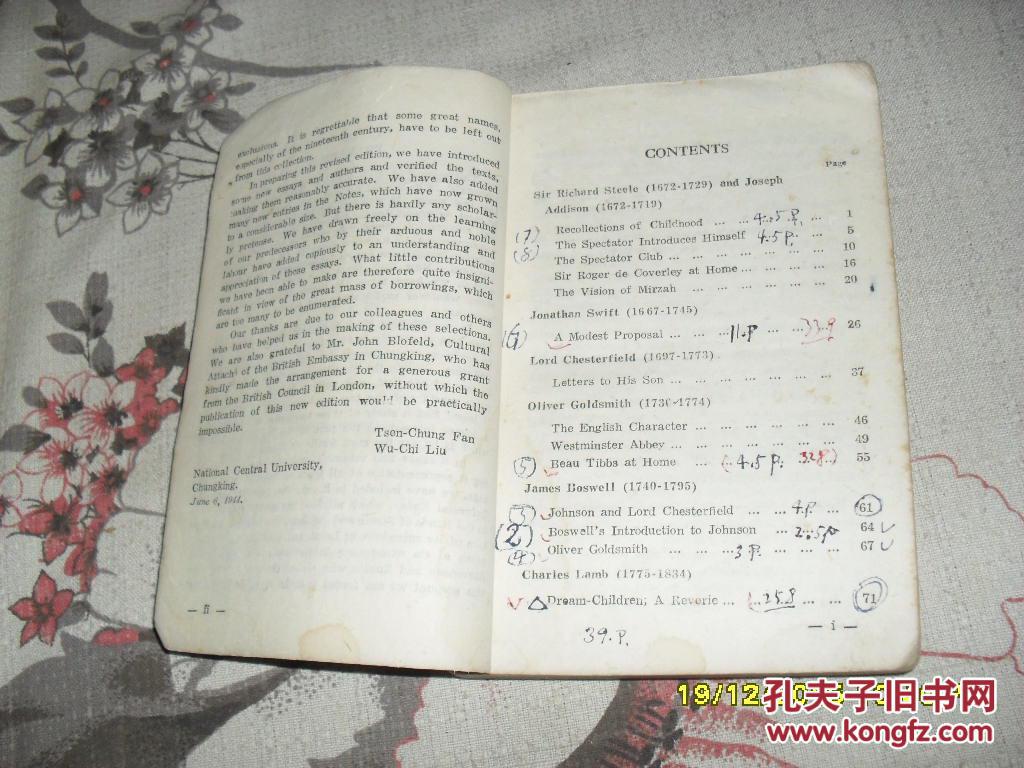 exclusions. It is regrettable that some great names,
especially of the nineteenth century, have to be left out
from this collection.
In preparing this revised edition, we have introduced
some new essays and authors and verified the texts,
making them reasonably accurate. We have also added
many new entries in the Notes, which have now grown
to a considerable size. But there is hardly any scholar-
ly pretense. We have drawn freely on the learning
of our predecessors who by their arduous and noble
labour have added copiously to an understanding and
appreciation of these essays. What little contributions
we have been able to make are therefore quite insigni-
ficant in view of the great mass of borrowings, which
are too many to be enumerated.
Our thanks are due to our colleagues and others
who have helped us in the making of these selections.
We are also grateful to Mr. John Blofeld, Cultural
Attaché of the British Embassy in Chungking, who has
kindly made the arrangement for a generous grant
from the British Council in London, without which the
publication of this new edition would be practically
impossible.
Tsen-Chung Fan
Wu-Chi Liu
National Central University,
Chungking.
June 6, 1944.
— ii —
CONTENTS
Page
Sir Richard Steele (1672-1729) and Joseph
Addison (1672-1719)
(7) Recollections of Childhood ... ... 4.5 P. ... 1
(8) The Spectator Introduces Himself 4.5 P. ... 5
The Spectator Club ... ... ... ... ... 10
Sir Roger de Coverley at Home ... ... ... ... 16
The Vision of Mirzah ... ... ... ... ... 20
Jonathan Swift (1667-1745)
A Modest Proposal ... ... ... 11.P ... ... 26
Lord Chesterfield (1697-1773)
Letters to His Son ... ... ... ... ... ... 37
Oliver Goldsmith (1730-1774)
The English Character ... ... ... ... ... 46
Westminster Abbey ... ... ... ... ... ... 49
(5) Beau Tibbs at Home ... (... 4.5 P. 328.) 55
James Boswell (1740-1795)
(3) Johnson and Lord Chesterfield ... ... 4P. ... 61
(2) Boswell's Introduction to Johnson ... 2.5P 64
(4) Oliver Goldsmith ... ... ... 3 P. ... ... ... 67
Charles Lamb (1775-1834)
Dream-Children; A Reverie ... (... 25.P ... ... 71
— i —
39.P.
19/12
孔夫子旧书网
www.kongfz.com